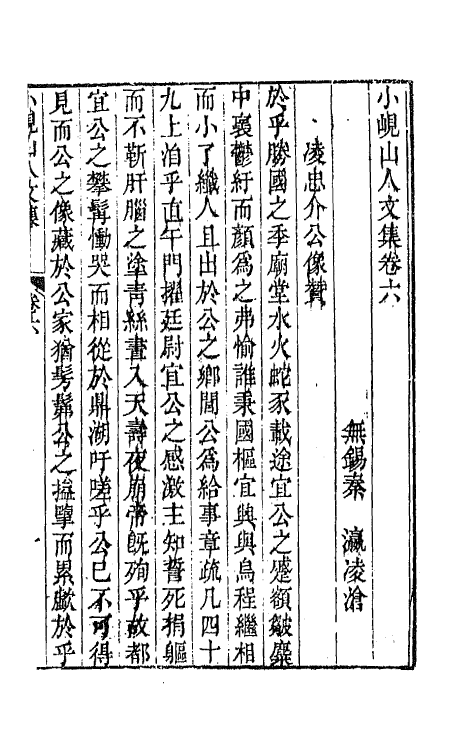 小峴山人文集卷六
無錫秦　瀛凌滄
凌忠介公像贊
於乎勝國之季廟堂水火蛇豕載途宜公之蹙額皺麋
中裏鬱紆而顏爲之弗愉誰秉國樞宜興與烏程繼相
而小了纖人且出於公之鄉閭公爲給事章疏凡四十
九上洎乎直午門擢廷尉宜公之感激主知誓死捐軀
而不靳肝腦之塗青絲晝入天壽夜崩帝旣殉乎故都
宜公之攀髯慟哭而相從於鼎湖吁嗟乎公已不可得
見而公之像藏於公家猶髣髴公之搤擥而累歔於乎
小峴山人文集
卷六
一